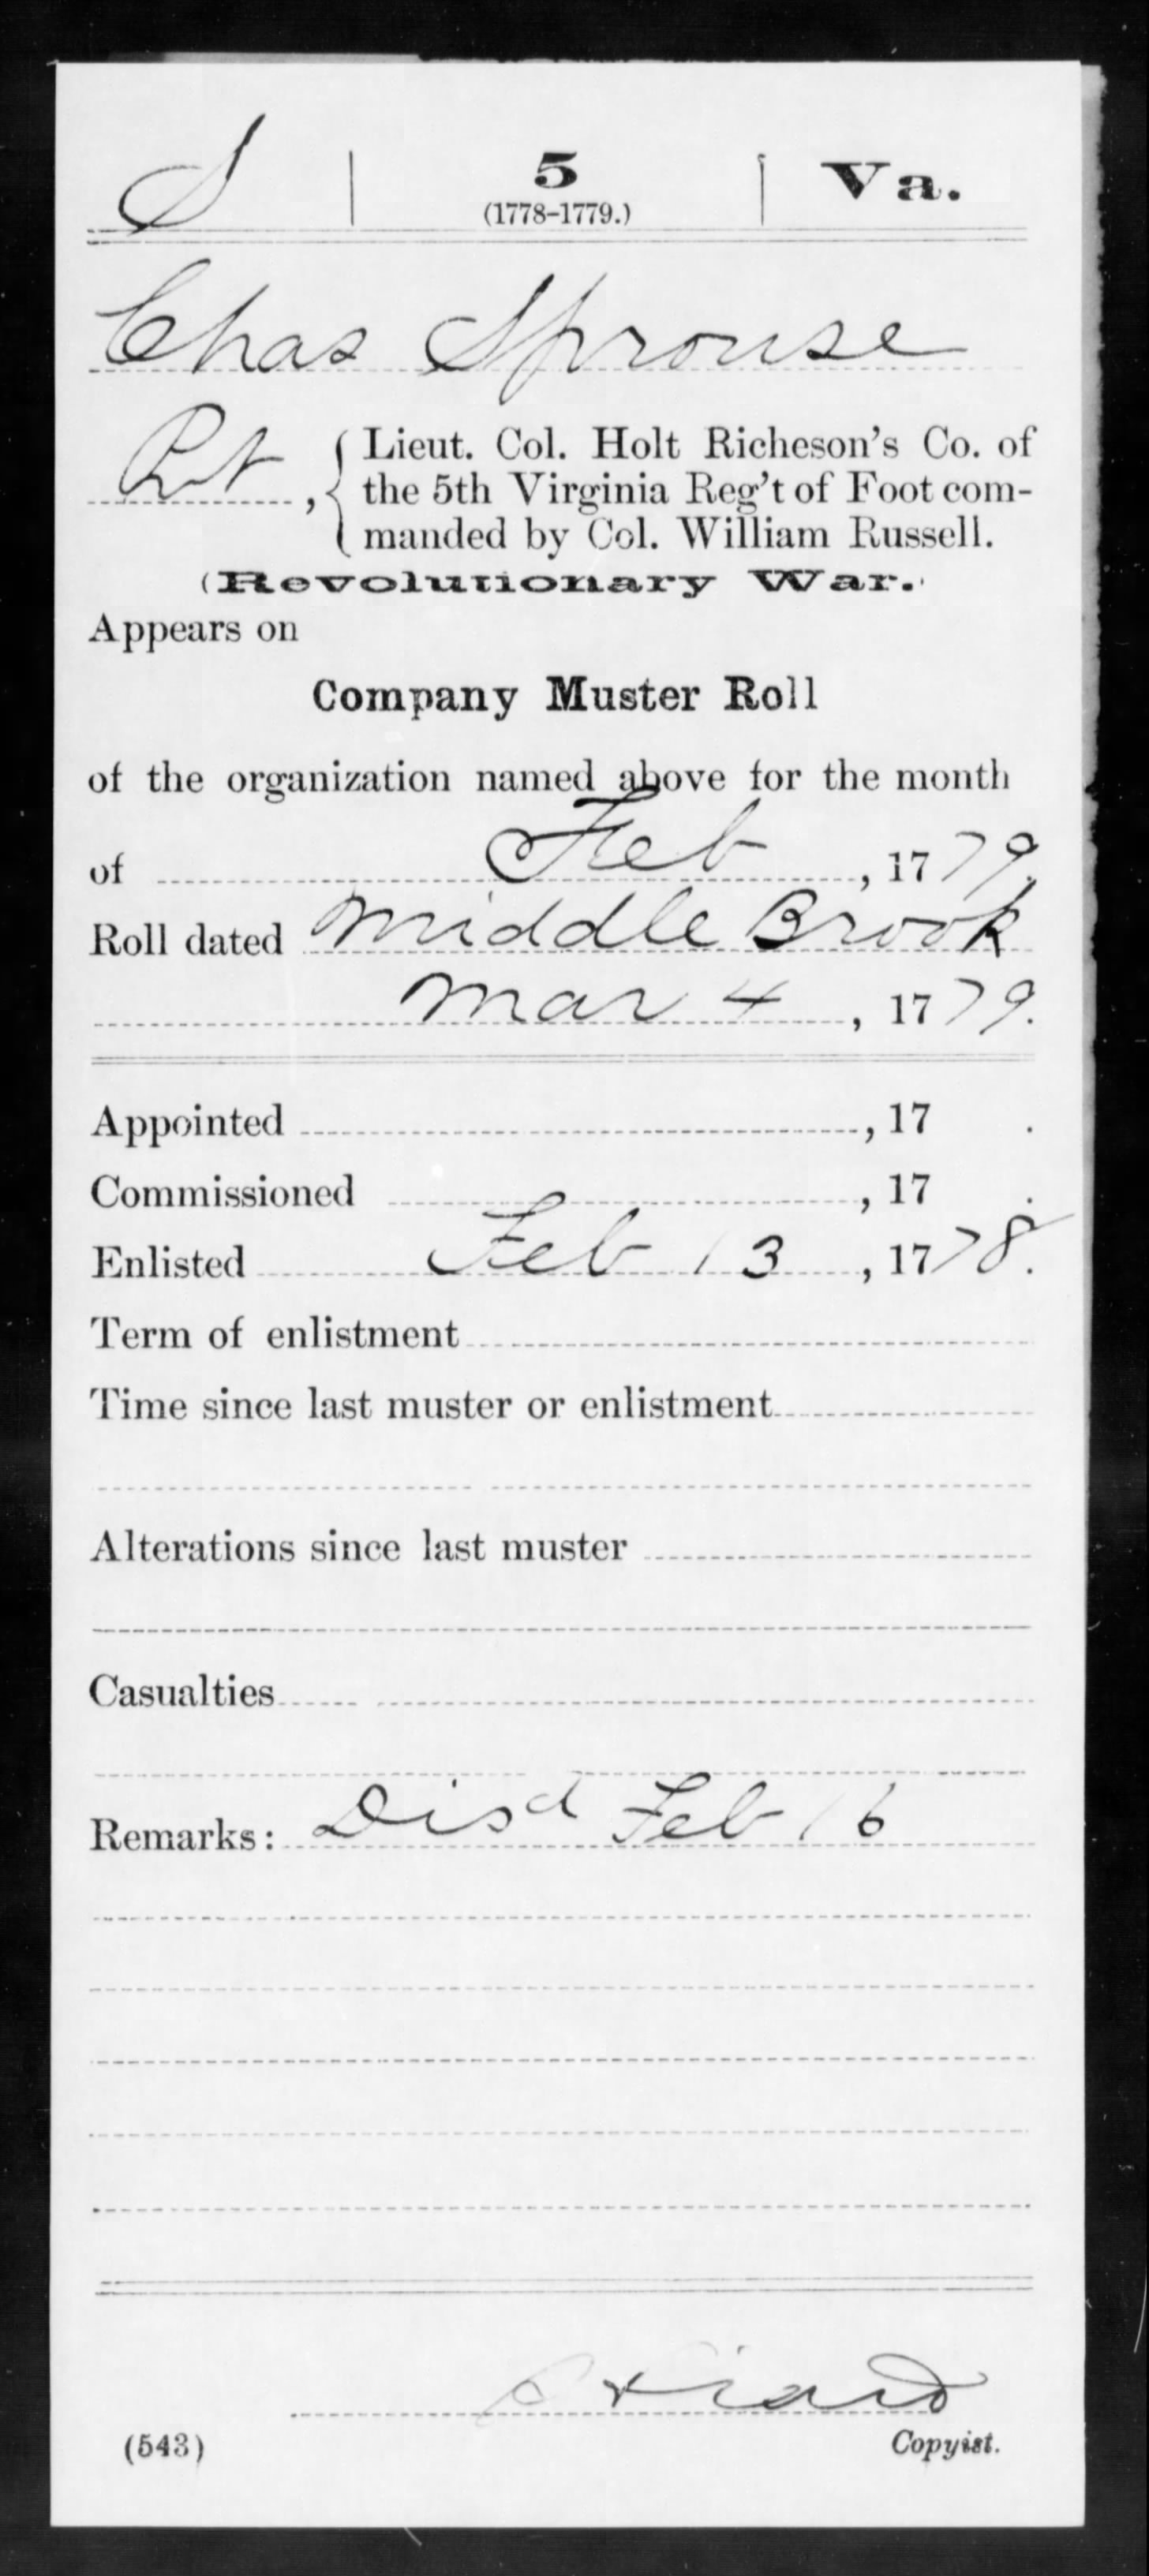 S | 5 | Va.
(1778-1779.)
Chas Sprouse
Pvt, { Lieut. Col. Holt Richeson's Co. of
the 5th Virginia Reg't of Foot com-
manded by Col. William Russell.
(Revolutionary War.)
Appears on
Company Muster Roll
of the organization named above for the month
of Feb, 1779.
Roll dated Middle Brook
Mar 4, 1779.
Appointed , 17 .
Commissioned , 17 .
Enlisted Feb 13, 1778.
Term of enlistment
Time since last muster or enlistment
Alterations since last muster
Casualties
Remarks: Disd Feb 16
(543)
Copyist.